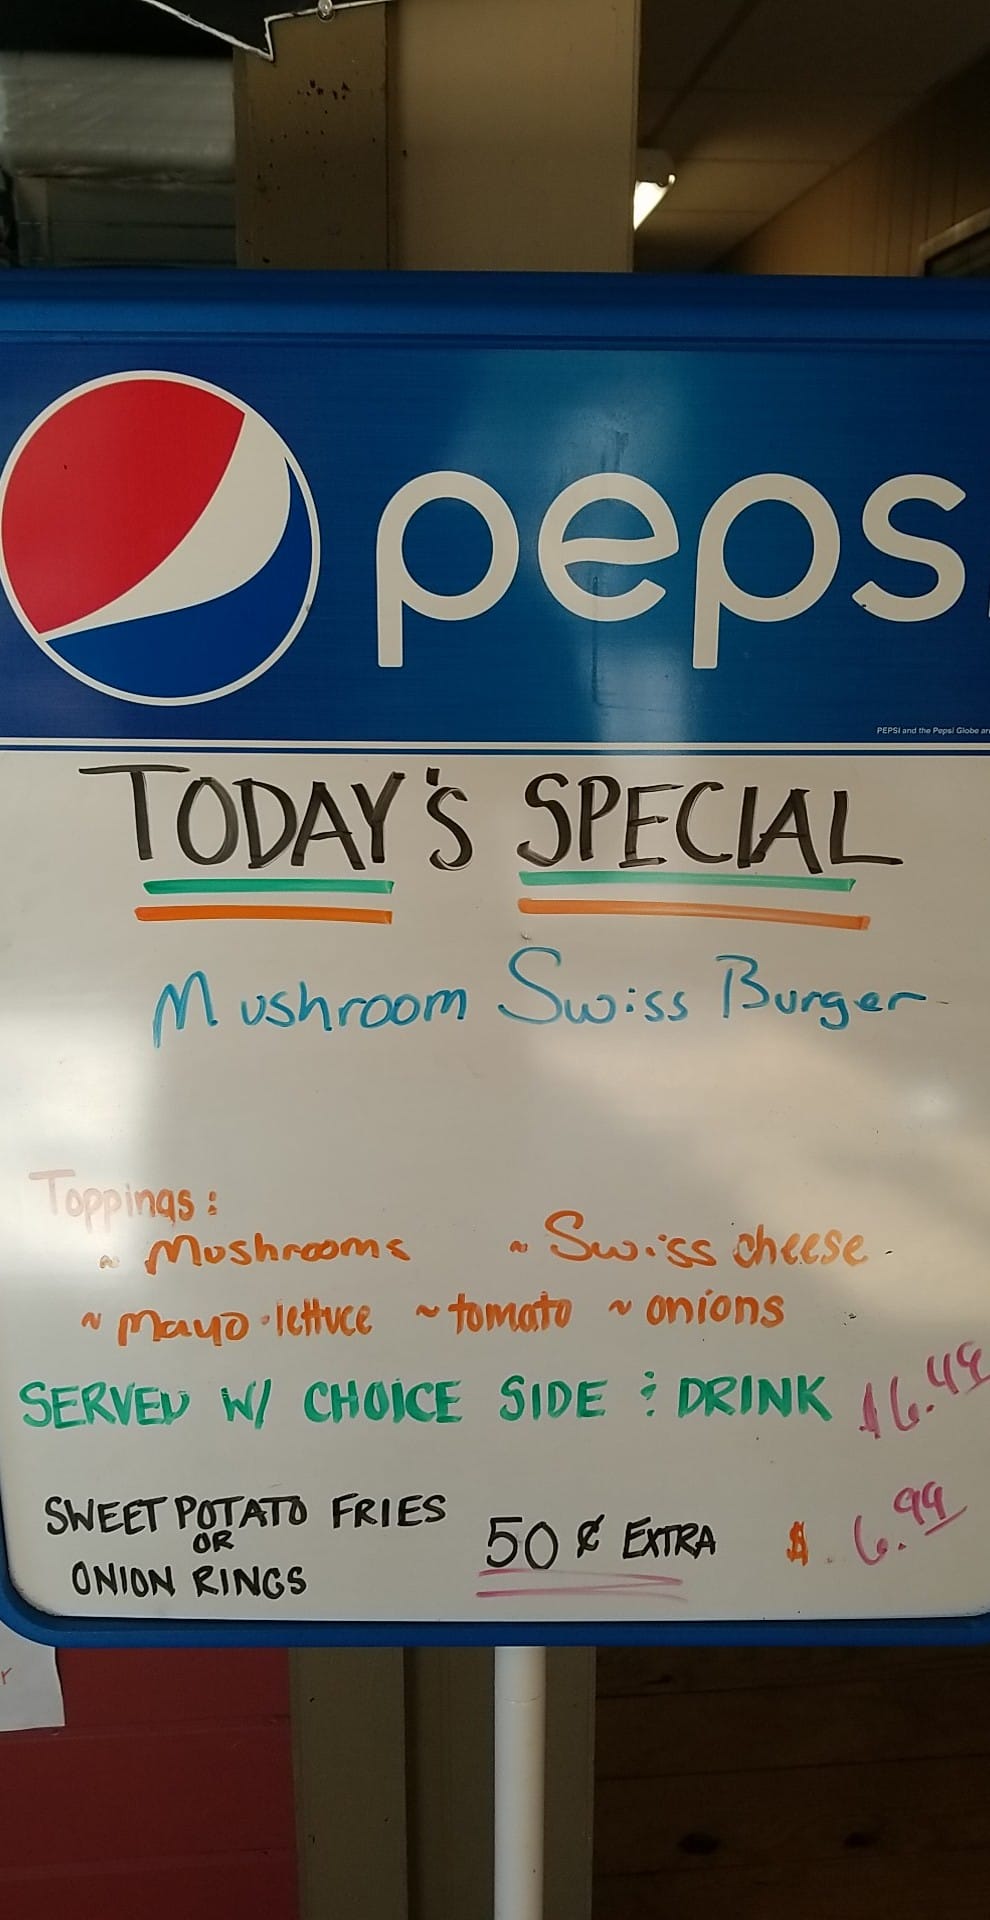 peps
PEPSI and the Pepsi Globe ar
TODAY'S SPECIAL
Mushroom Swiss Burger
Toppings:
~ Mushrooms ~ Swiss cheese
~ Mayo · lettuce ~ tomato ~ onions
SERVED W/ CHOICE SIDE & DRINK $6.49
SWEET POTATO FRIES
OR
ONION RINGS
50¢ EXTRA $ 6.99